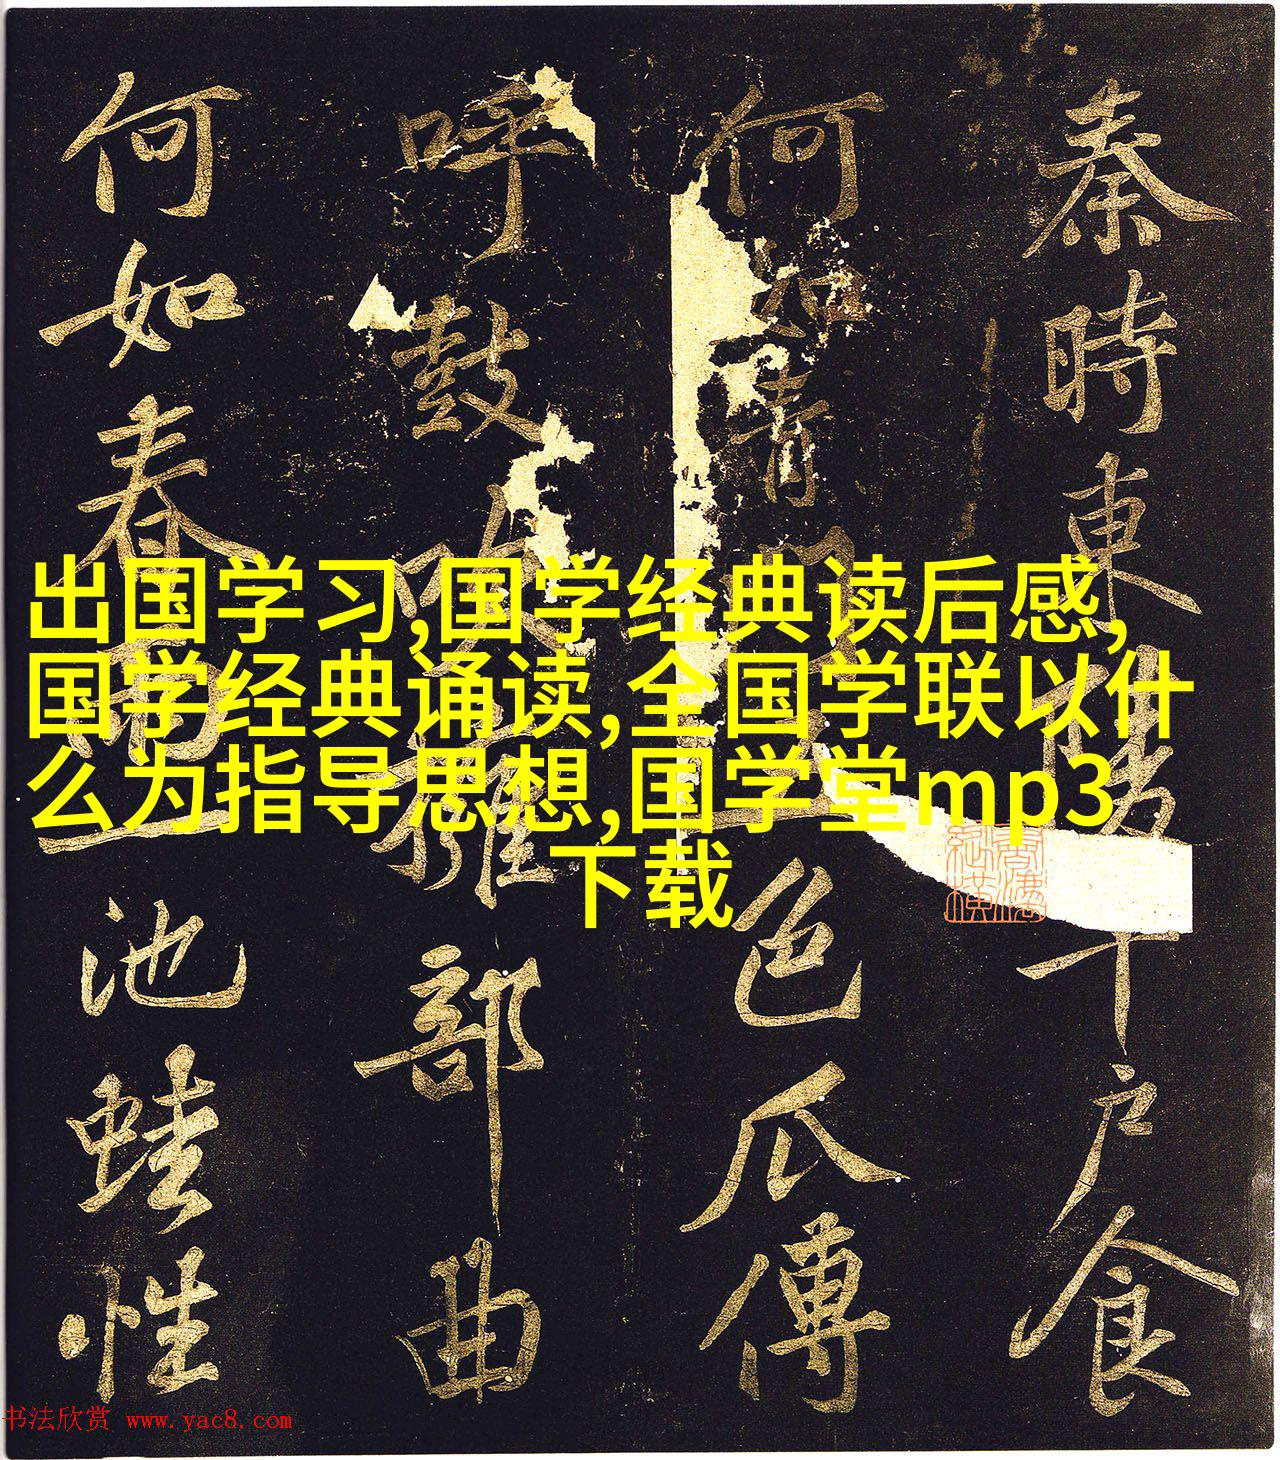 秦時東陵千戶食
何如青門五色瓜傳
呼鼓吹擁部曲
何如春雨一池蛙性
出国学习,国学经典读后感,
国学经典诵读,全国学联以什
么为指导思想,国学堂mp3
下载
书法欣赏 www.yac8.com